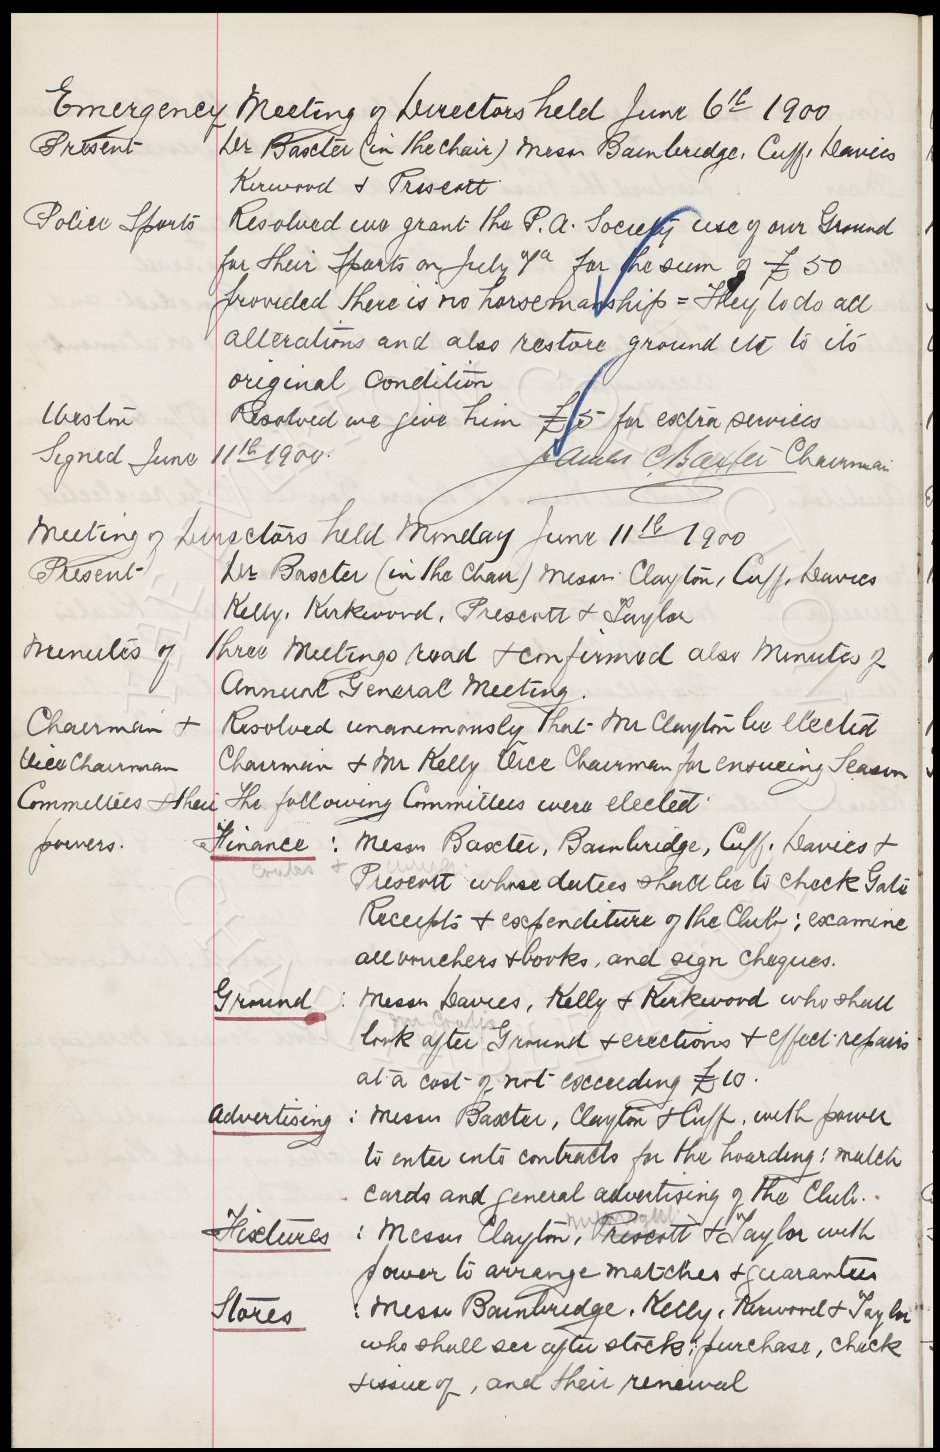 Emergency Meeting of Directors held June 6th 1900
Present Dr Baxter (in the chair) Messrs Bainbridge, Cuff, Davies
Kirwood & Prescott
Police Sports Resolved we grant the P.A. Society use of our Ground
for their Sports on July for the sum of £50
provided there is no horsemanship = They to do all
alterations and also restore ground etc to its
original condition
Weston Resolved we give him £5 for extra services
Signed June 11th 1900. James C. Baxter Chairman
Meeting of Directors held Monday June 11th 1900
Present Dr Baxter (in the Chair) Messrs Clayton, Cuff, Davies
Kelly, Kirkwood, Prescott & Taylor
Minutes of three Meetings read & confirmed also Minutes of
Annual General Meeting.
Chairman & Resolved unanimously that Mr Clayton be elected
Vice Chairman Chairman & Mr Kelly Vice Chairman for ensueing Season
Committees & their The following Committees were elected
powers. Finance : Messrs Baxter, Bainbridge, Cuff, Davies &
Prescott whose duties shall be to check Gate
Receipts & expenditure of the Club; examine
all vouchers & books, and sign cheques.
Ground : Messrs Davies, Kelly & Kirkwood who shall
Mr Coates
look after Ground & erections & effect repairs
at a cost of not exceeding £10.
Advertising : Messrs Baxter, Clayton & Cuff, with power
to enter into contracts for the hoarding: match
cards and general advertising of the Club.
Fixtures : Messrs Clayton, Prescott & Taylor with
power to arrange matches & guarantees
Stores : Messrs Bainbridge, Kelly, Kirwood & Taylor
who shall see after stock: purchase, check
& issue of, and their renewal